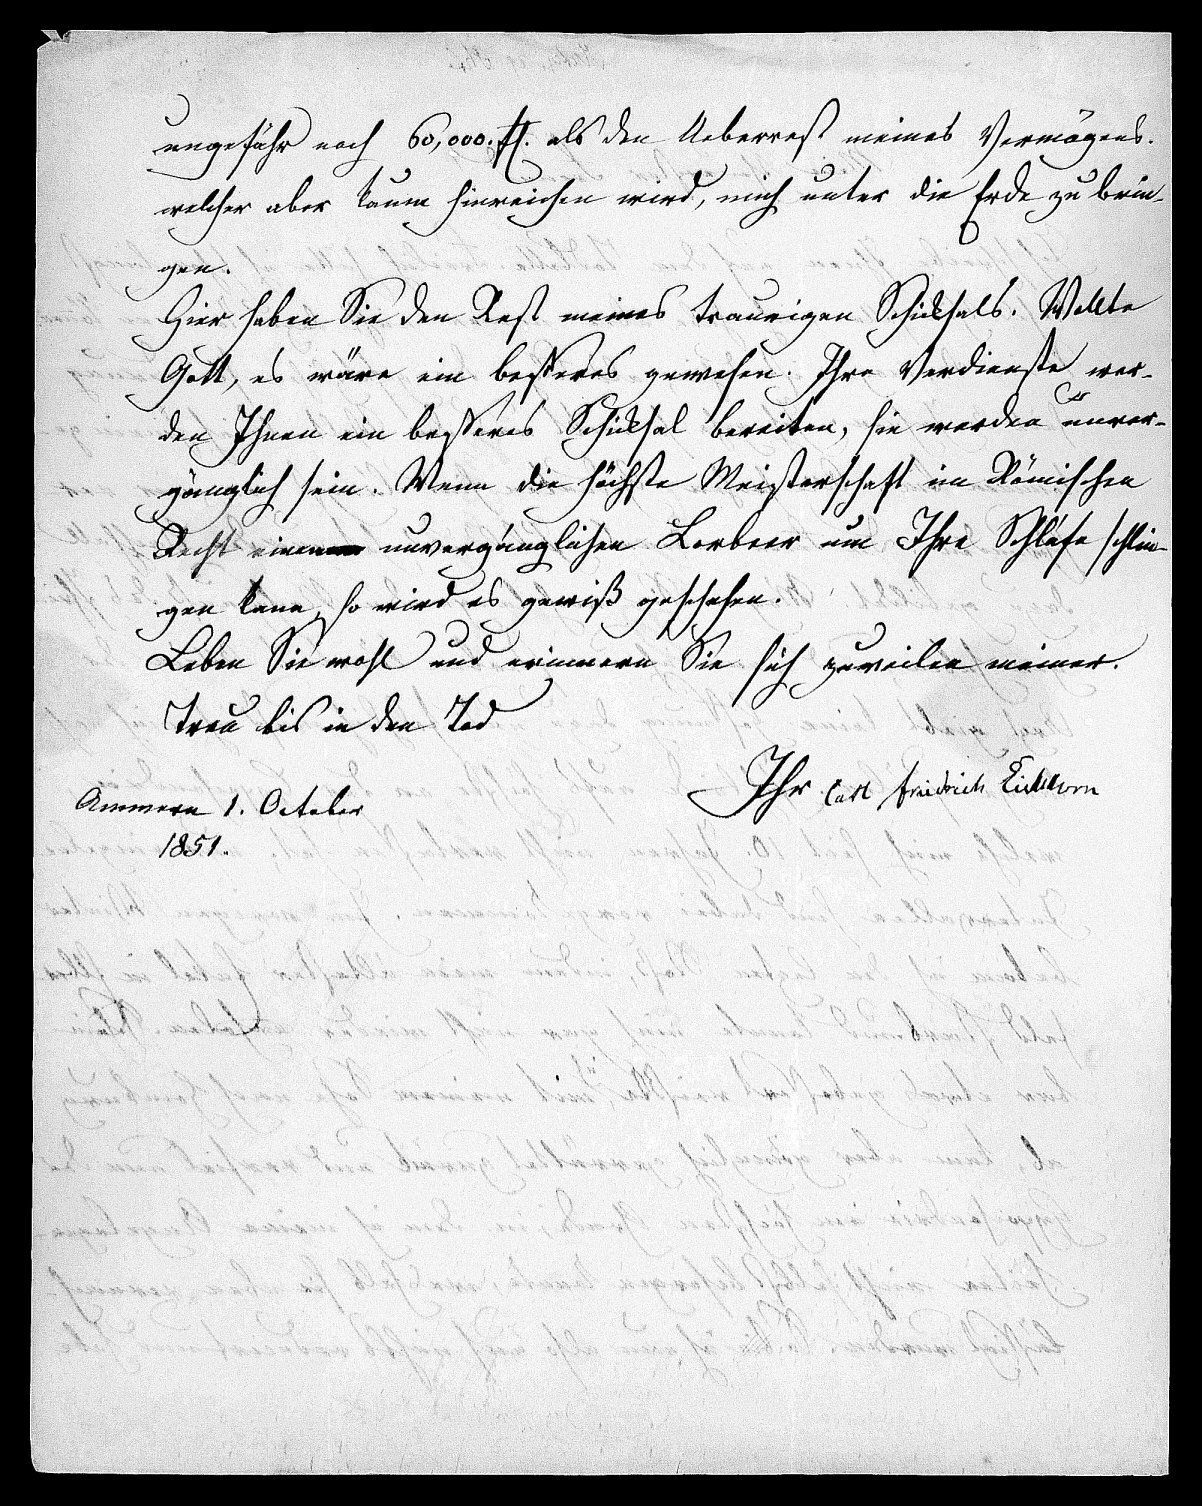 ungefähr noch 60,000. fl. als den Ueberrest meines Vermögens.
welcher aber kaum hinreichen wird, mich unter die Erde zu brin-
gen.
Hier haben Sie den Rest meines traurigen Schicksals. Wollte
Gott, es wäre ein besseres gewesen. Ihre Verdienste wer-
den Ihnen ein besseres Schicksal bereiten, sie werden unver-
gänglich sein. Wenn die höchste Meisterschaft im Römischen
Recht einen unvergänglichen Lorbeer um Ihre Schläfe schlin-
gen kann, so wird es gewiß geschehen.
Leben Sie wohl und erinnern Sie sich zuweilen meiner.
Treu bis in den Tod
Ihr Carl Friedrich Eichhorn
Ammern 1. October
1851.